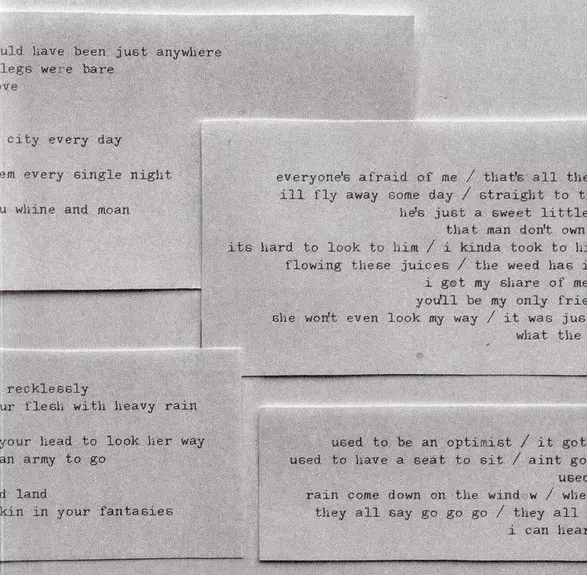 uld have been just anywhere
legs were bare
ove
city every day
em every single night
u whine and moan
everyone's afraid of me / that's all the
ill fly away some day / straight to t
he's just a sweet little
that man don't own
its hard to look to him / i kinda took to hi
flowing these juices / the weed has i
i got my share of me
you'll be my only frie
she won't even look my way / it was jus
what the
recklessly
ur flesh with heavy rain
your head to look her way
an army to go
d land
kin in your fantasies
used to be an optimist / it got
used to have a seat to sit / aint go
used
rain come down on the window / whe
they all say go go go / they all
i can hear